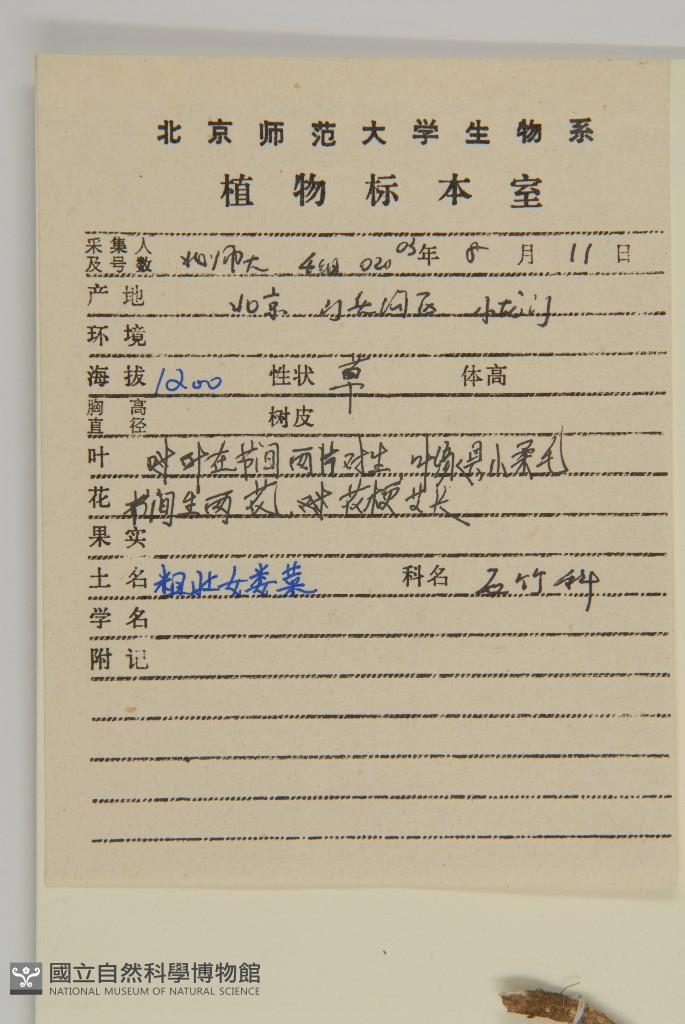 北京师范大学生物系
植物标本室
采集人及号数 北师大 4组 020 03年 8月 11日
产地 北京 门头沟区 小龙门
环境
海拔 1200 性状 草 体高
胸高直径 树皮
叶 对叶在节间两片对生,叶缘具小柔毛
花 节间生两花,对花梗
果实
土名 粗壮女娄菜 科名 石竹科
学名
附记
國立自然科學博物館
NATIONAL MUSEUM OF NATURAL SCIENCE